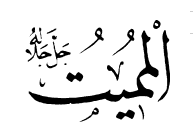 الْمُمِيتُ جَلَّ جَلَالُهُ